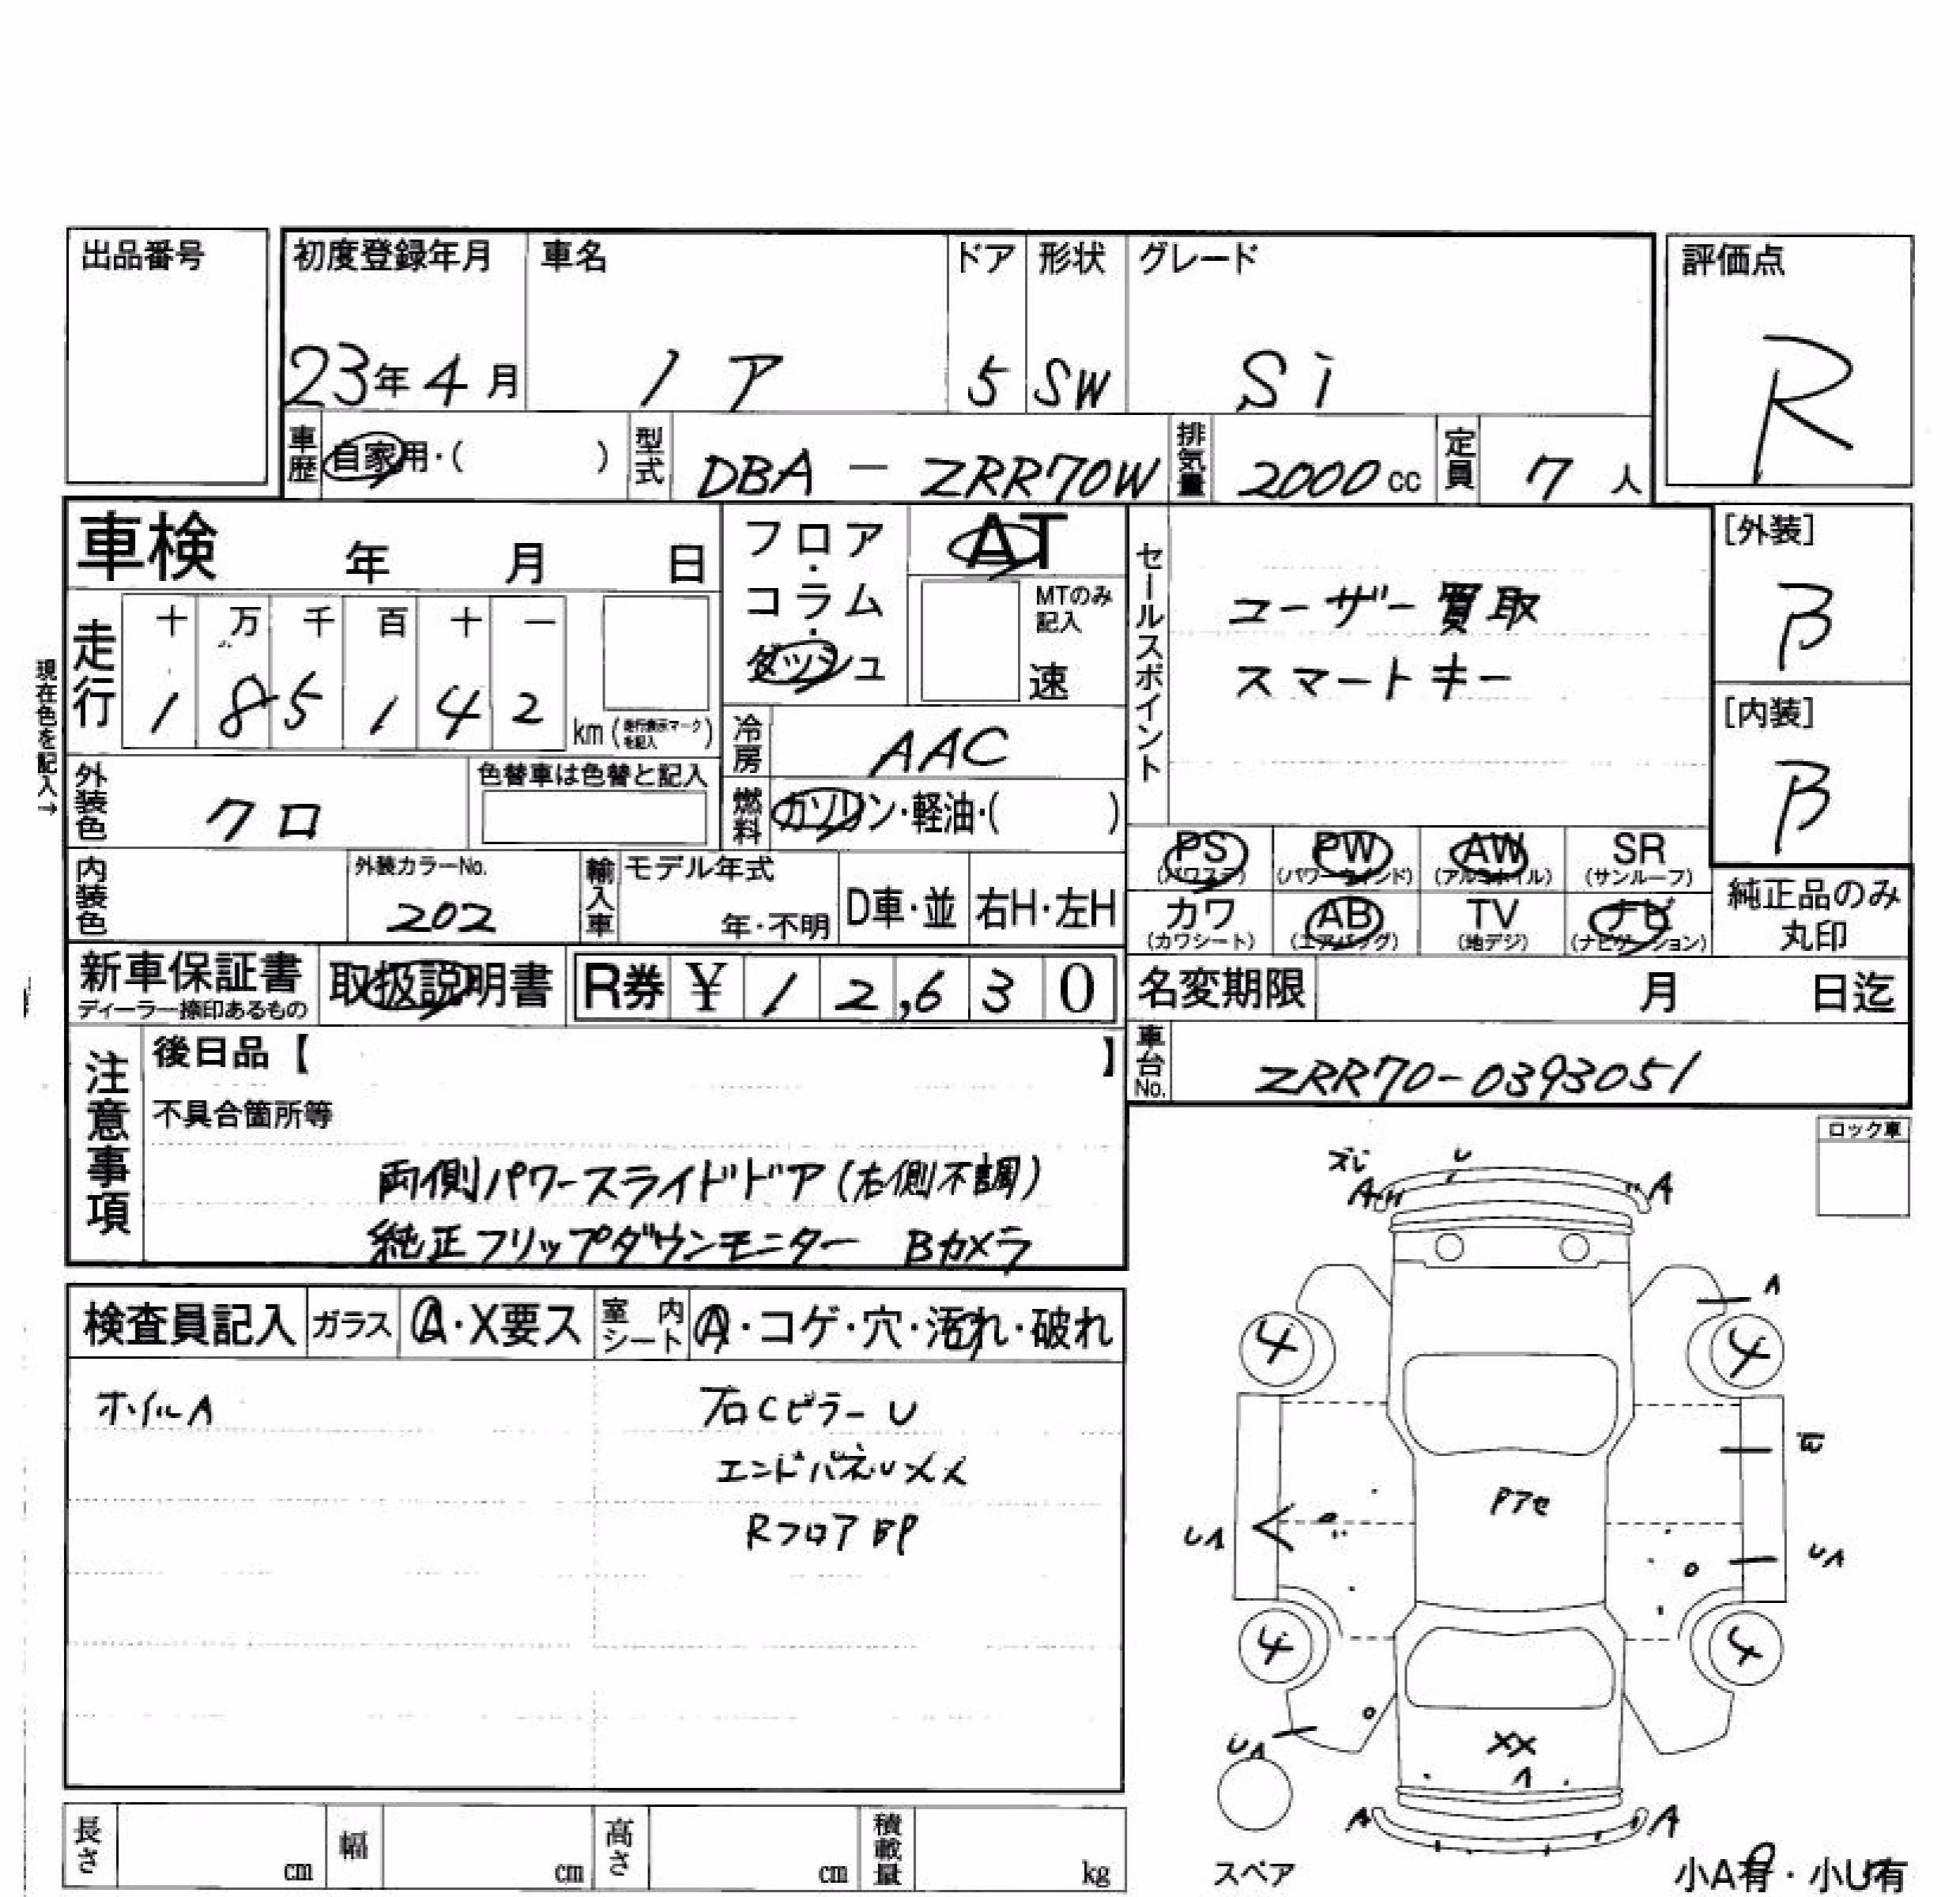 出品番号
初度登録年月 車名 ドア 形状 グレード 評価点
23年4月 ノア 5 SW Si R
車歴 自家用・( ) 型式 DBA-ZRR70W 排気量 2000cc 定員 7人
車検 年 月 日
フロア・コラム・ダッシュ AT
MTのみ記入
速
セールスポイント
ユーザー買取
スマートキー
[外装]
B
[内装]
B
現在色を記入→
走行 十 万 千 百 十 一
1 8 5 1 4 2 km(走行表示マークを記入)
冷房 AAC
外装色 クロ 色替車は色替と記入
燃料 ガソリン・軽油・( )
PS PW AW SR
(パワステ) (パワーウインド) (アルミホイル) (サンルーフ)
カワ AB TV ナビ
(カワシート) (エアバッグ) (地デジ) (ナビゲーション)
純正品のみ丸印
内装色 外装カラーNo. 202 輸入車 モデル年式 年・不明 D車・並 右H・左H
新車保証書 取扱説明書 R券 ¥ 1 2,6 3 0
ディーラー捺印あるもの
名変期限 月 日迄
車台No. ZRR70-0393051
注意事項
後日品【 】
不具合箇所等
両側パワースライドドア(右側不調)
純正フリップダウンモニター Bカメラ
ロック車
検査員記入 ガラス A・X要ス 室内シート A・コゲ・穴・汚れ・破れ
ホイルA
右CピラーU
エンドパネルメメ
RフロアBP
ズレ U
A A
A
4 4
W
Pアセ
UA UA
4 4
UA
XX
A
A A
スペア
小A有・小U有
長さ cm 幅 cm 高さ cm 積載量 kg